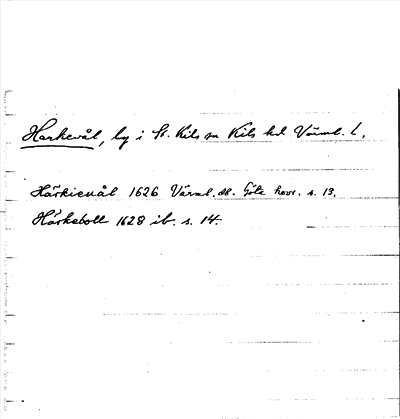 Harkevål, by i St. Kils sn Kils hd Värml. l.
Härkieuål 1626 Värml. dl. Göta hovr. s. 13.
Härkeboll 1628 ib. s. 14.